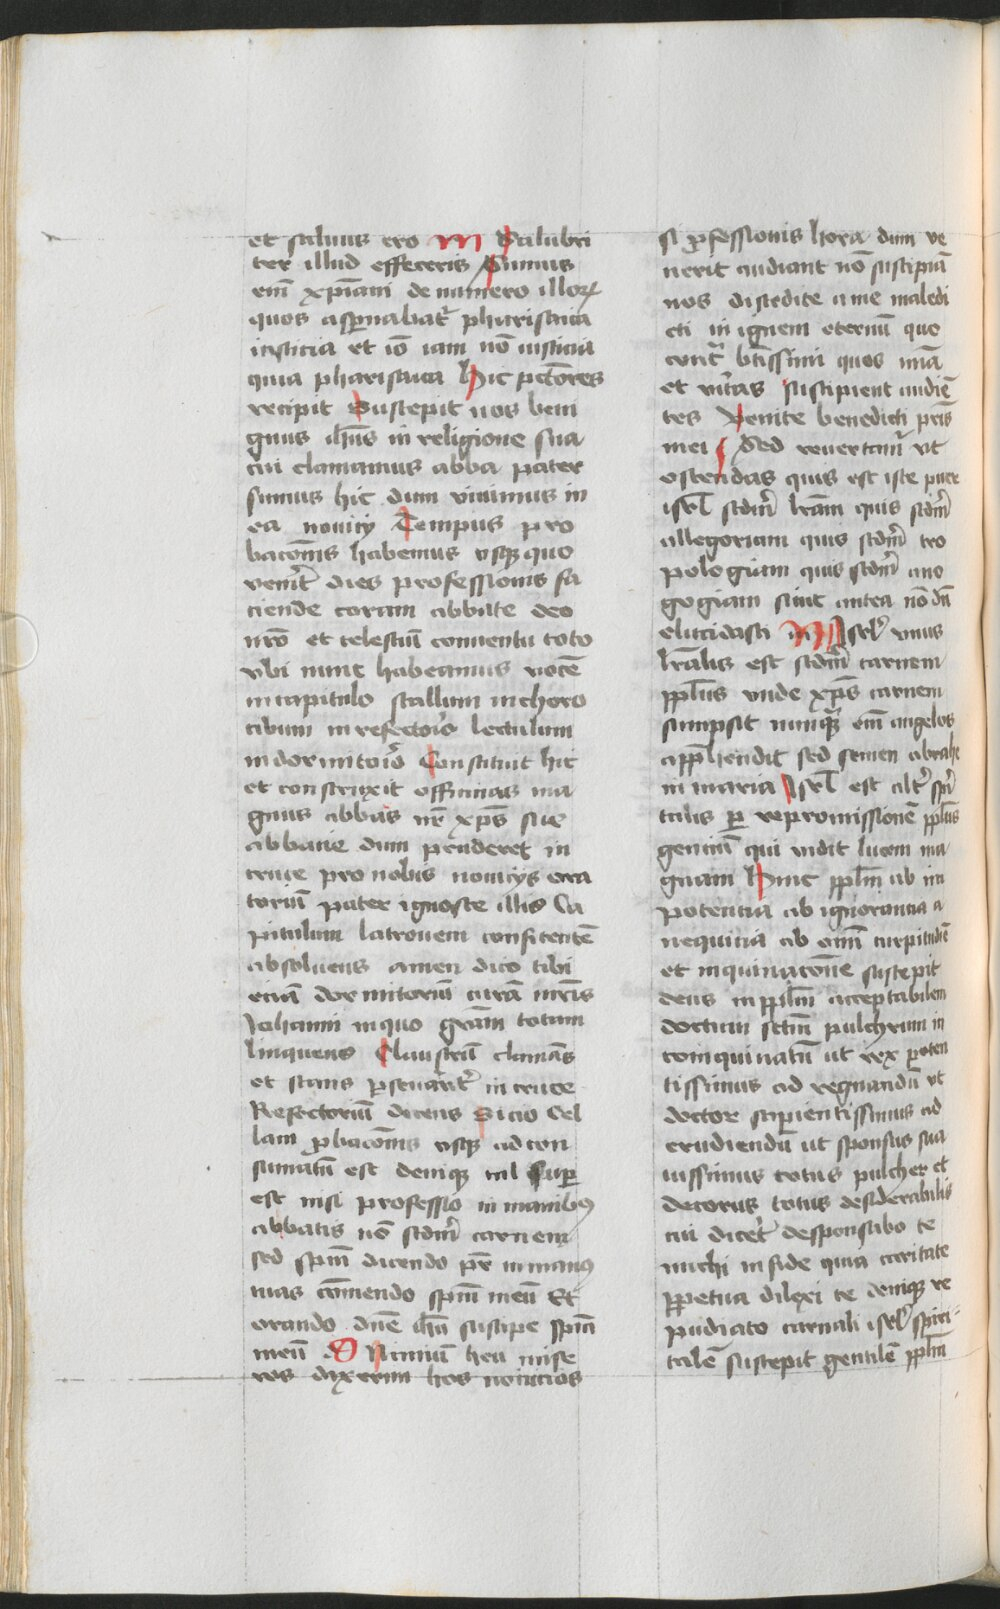 et saluus ero M Salubri
ter illud effeceris Sumus
em̄ xp̄iani de numero illoꝝ
quos aspnabat᷑ pharisaica
iusticia et iō iam nō iusticia
quia pharisaica Hic pctōres
recipit Suscepit nos beni
gnus ih̄us in religione sua
cui clamamus abba pater
sumus hic dum viuimus in
ea nouicij Tempus pro
bacōnis habemus vsqꝫ quo
venīt dies professionis fa
ciende coram abbate deo
nr̄o et celestiū conuentu toto
vbi nunc habeamus vocē
in capitulo stallum in choro
cibum in refectorio lectulum
in dormitorio Constituit hic
et construxit officinas ma
gnus abbas nr̄ xp̄s sue
abbacie dum penderet in
cruce pro nobis nouicijs ora
toriū pater ignosce illis Ca
pitulum latronem confitentē
absoluens amen dico tibi
eciā dormitoriū curā mr̄is
Iohanni in quo grām totam
linquens Claustrū clamās
et stans pseuarāt᷑ in cruce
Refectoriū dicens Sicio Cel
lam pbacōnis vsqꝫ ad con
sumatū est deniqꝫ nil supꝑ
est nisi professio in manibꝰ
abbatis nō scdm̄ carnem
sed spm̄ dicendo pr̄ in manꝰ
tuas cōmendo spm̄ meū Et
orando dn̄e ih̄u suscipe spm̄
meū D Nimiū heu mise
ros dixerim hos nouicios
si pfessionis hora dum ve
nerit audiant nō suscipiā
nos discedite a me maledi
cti in ignem eternū quo
contᷓ btissimi quos mīa
et vitas suscipient audiē
tes Venite benedicti pris̄
mei Sed reuertam᷑ vt
ostendas quis est iste puer
isrl̄ scdm̄ lrām quis scdm̄
allegoriam quis scdm̄ tro
pologiam quis scdm̄ ano
gogiam sicut antea nōdū
elucidasti M Isrl̄ vnus
lrālis est scdm̄ carnem
ppl̄us vnde xp̄s carnem
sumpsit nunqꝫ em̄ angelos
appͤhendit sed semen abrahe
in maria Isrl̄ est alt᷑ spi
talis ꝑ repromissionē ppl̄us
genciū qui vidit lucem ma
gnam Hunc ppl̄m ab im
potencia ab ignorancia a
nequicia ab omī turpitudīe
et inquinacōne suscepit
deus in ppl̄m acceptabilem
doctum sctm̄ pulchrum in
coinquinatū ut rex poten
tissimus ad regnandū vt
doctor sapientissimus ad
erudiendū ut sponsus sua
uissimus totus pulcher et
decorus totus desiderabilis
cui dicet᷑ desponsabo te
michi in fide quia caritate
ppetua dilexi te deniqꝫ re
pudiato carnali isrl̄ spiri
talē suscepit gentilē ppl̄m